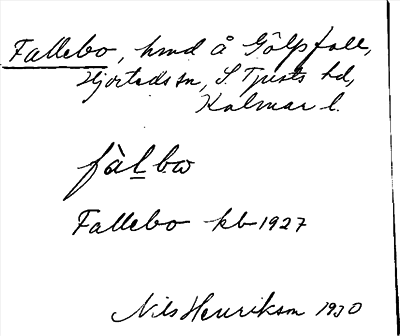 Fallebo, hmd å Gölpfall,
Hjorteds sn, S. Tjusts hd,
Kalmar l.
fàlbω
Fallebo kb 1927
Nils Henrikson 1930